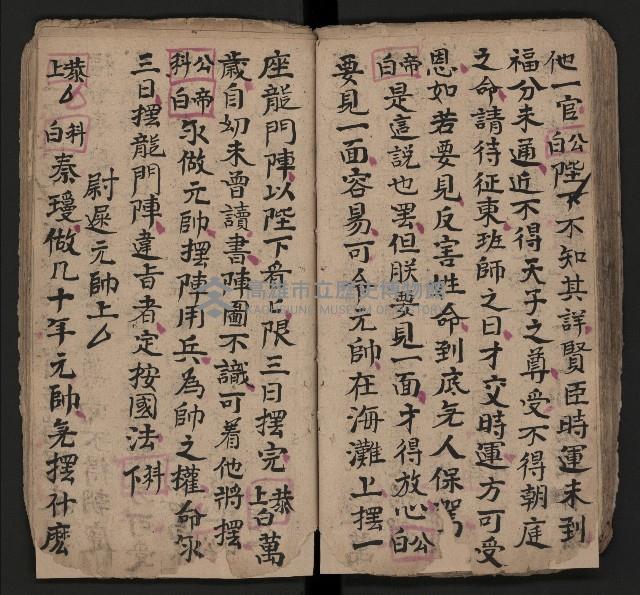 他一官公白陛下不知其詳賢臣時運未到
福分未通近不得天子之尊受不得朝庭
之命請待征東班師之日才交時運方可受
恩如若要見反害性命到底無人保
帝白是這說也罷但朕要見一面才得放心公白
要見一面容易可命元帥在海灘上擺一
座龍門陣以陛下看占限三日擺完恭上白萬
歲自幼未曾讀書陣圖不識可着他將擺
公科帝白永做元帥擺陣用兵為帥之權命永
三日擺龍門陣違旨者定按國法科下
尉遲元帥上
恭上科白秦瓊做几十年元帥無擺什麽
高雄市立歷史博物館
KAOHSIUNG MUSEUM OF HISTORY